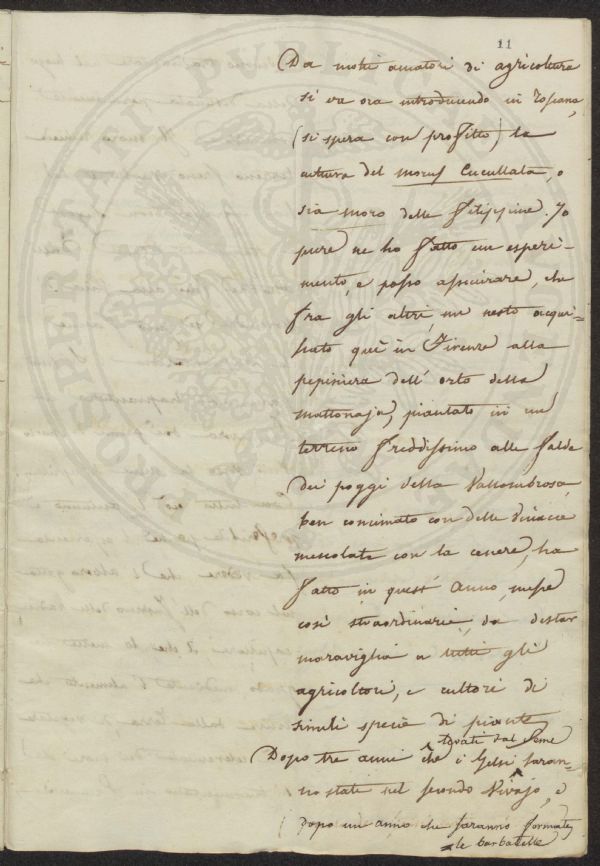 11
Da molti amatori di agricoltura
si va ora introducendo in Toscana,
(si spera con profitto) la
cultura del morus Cucullata, o
sia moro delle Filippine. Io
pure ne ho fatto un esperi-
mento, e posso assicurare, che
fra gli altri, un nesto acqui=
stato quì in Firenze alla
pepiniera dell' orto della
Mattonaja, piantato in un
terreno freddissimo alle falde
dei poggi della Vallombrosa,
ben concimato con delle vinacie
mescolate con la cenere, ha
fatto in quest' Anno, messe
così straordinarie, da destar
maraviglia a tutti gli
agricoltori, e cultori di
simili specie di piante
levati dal seme
Dopo tre anni che i Gelsi saran=
no stati nel secondo Vivajo, e
dopo un anno che saranno formate
le barbatelle
PROSPERITATI PUBLICAE